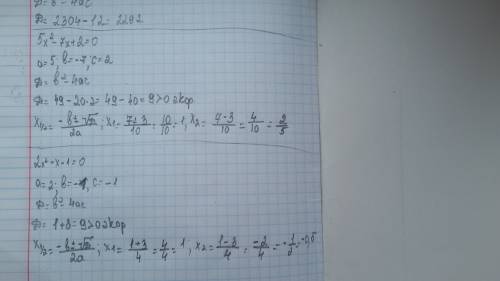 D=b²-4ac
D= 2304-12= 2292
5x²-7x+2=0
a=5; b=-7, c=2
D=b²-4ac
D= 49-20·2= 49-40=9>0 2кор
x1/2= -b±√D/2a; x1= 7+3/10= 10/10= 1, x2= 7-3/10= 4/10= 2/5
2x²-x-1=0
a=2; b=-1, c=-1
D=b²-4ac
D= 1+8=9>0 2кор
x1/2= -b±√D/2a; x1= 1+3/4= 4/4= 1, x2= 1-3/4= -2/4= -1/2=-0,5